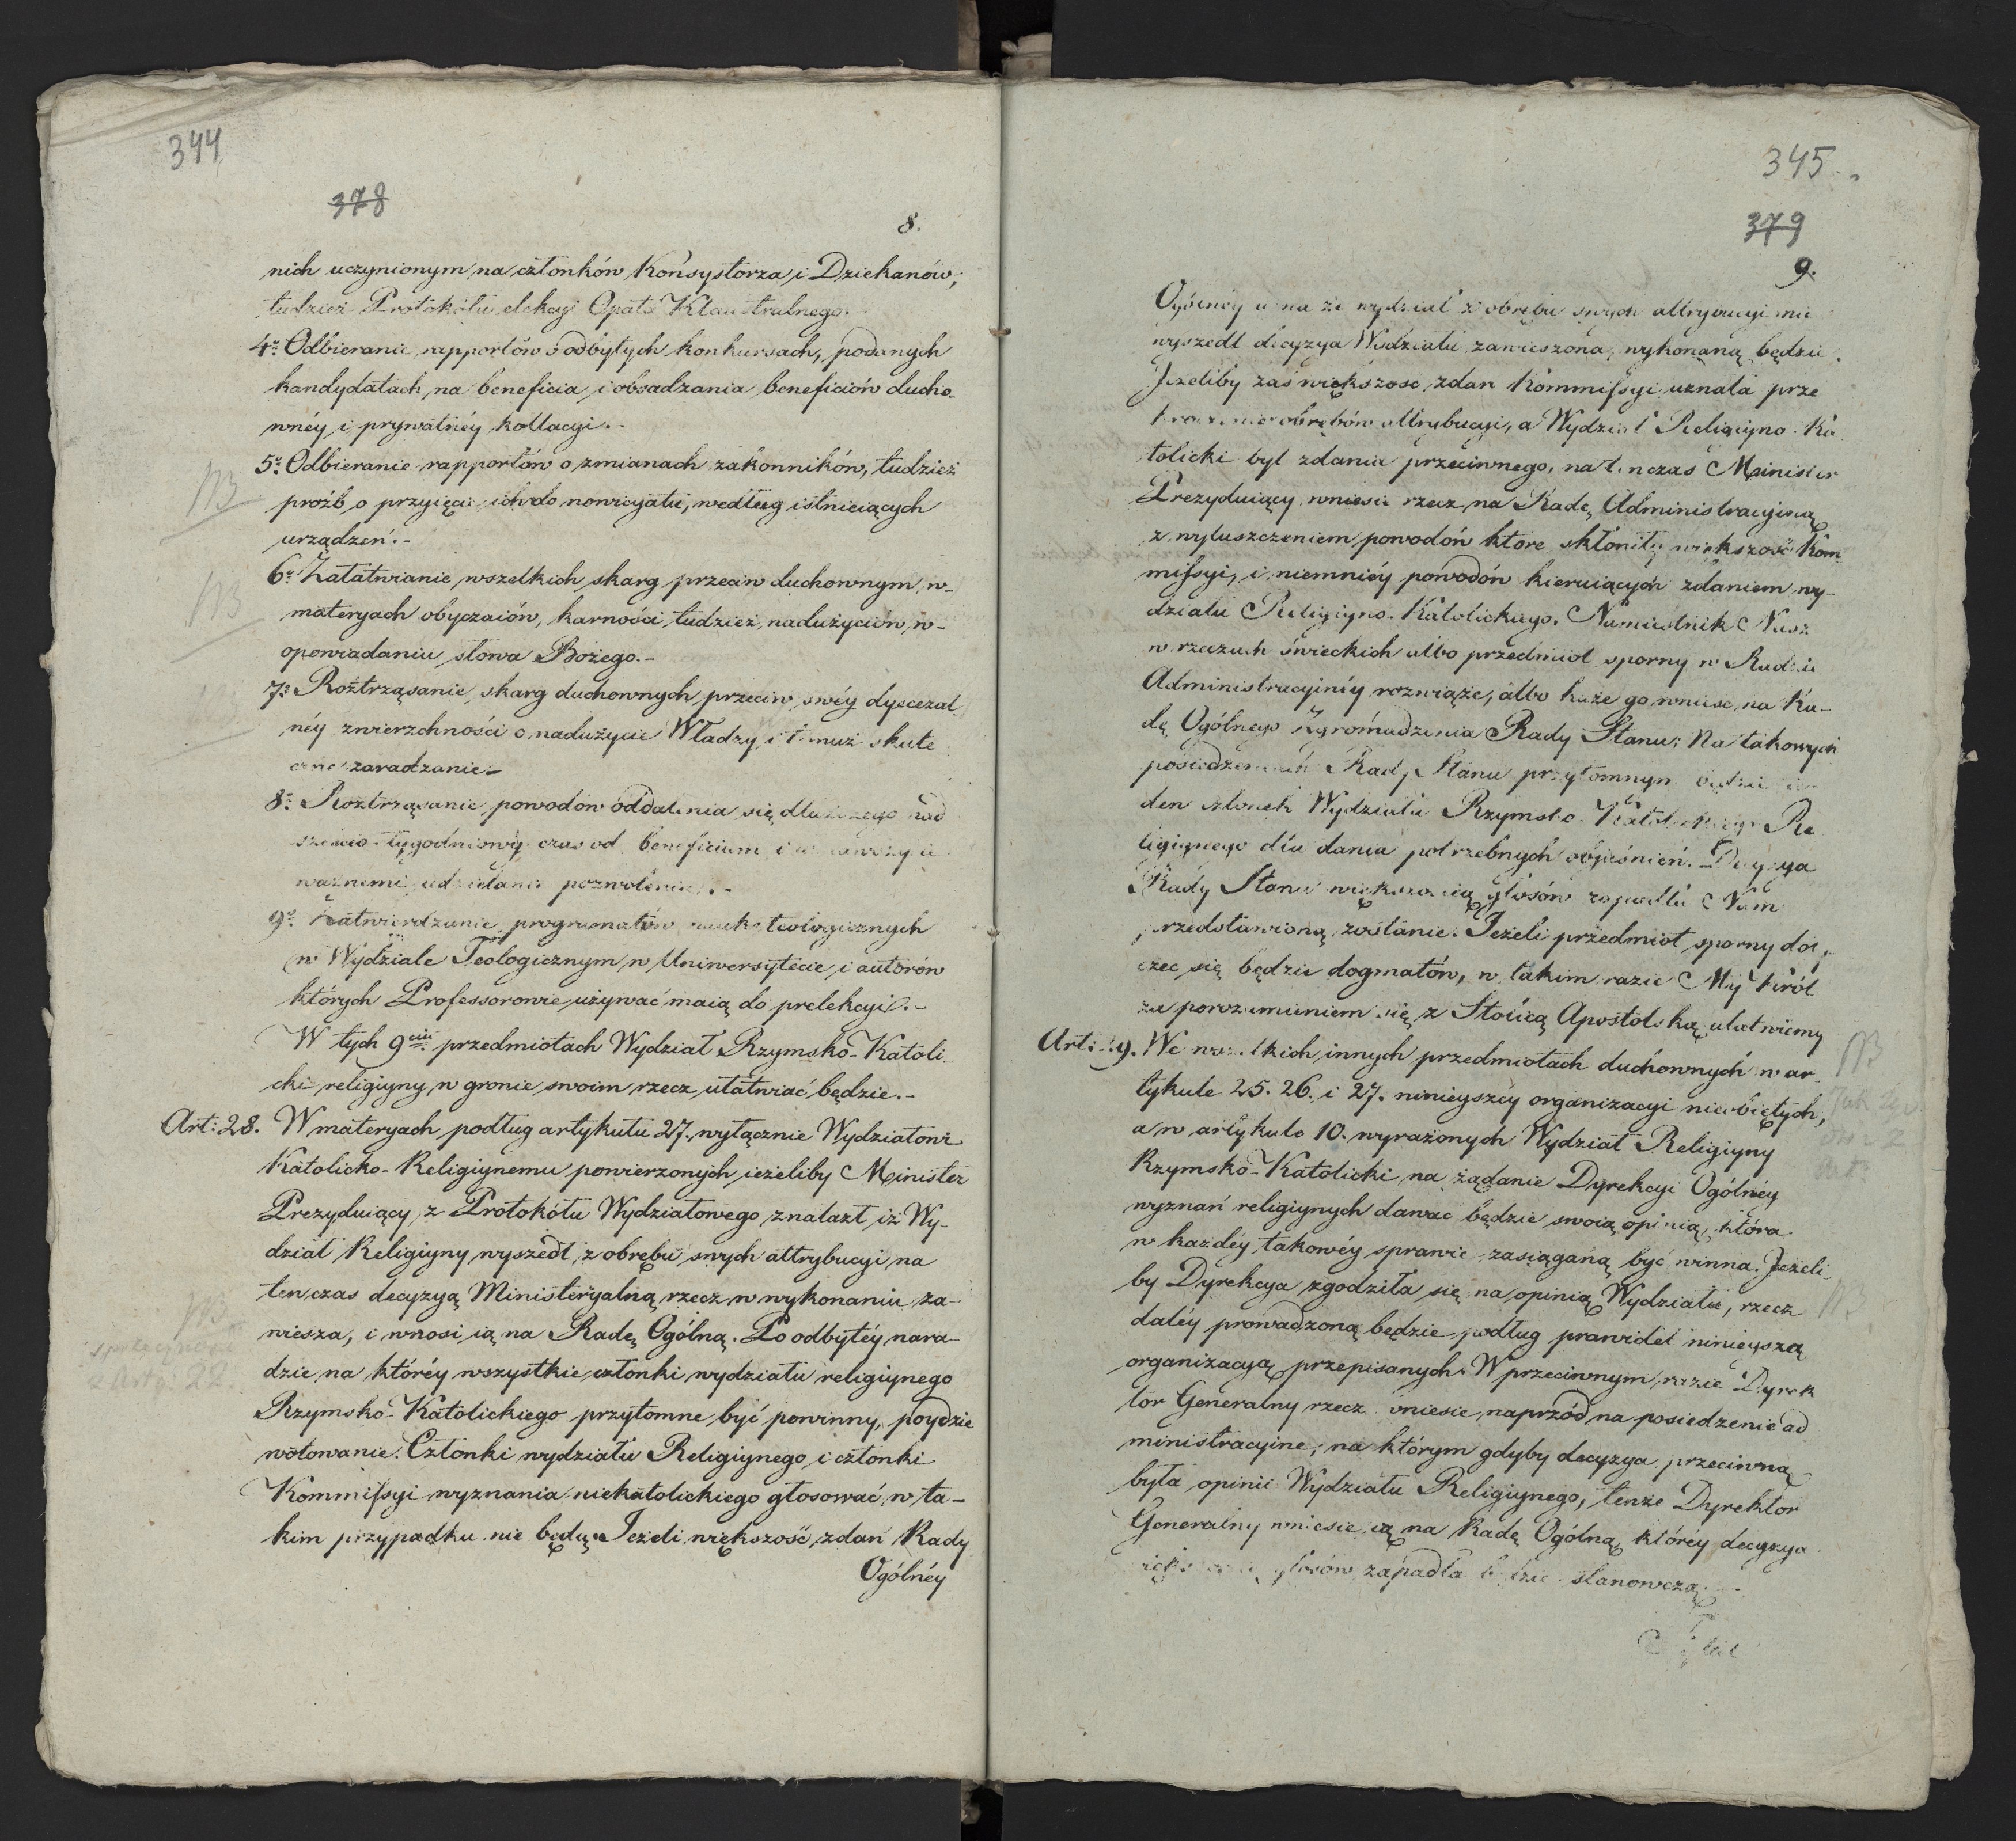 344
378
8.
nich uczynionym na członków Konsystorza i Dziekanów;
tudzież Protokółu elekcyi Opata Klaustralnego.-
4º Odbieranie rapportów o odbytych konkursach, podanych
kandydatach na beneficia i obsadzania beneficiów ducho-
wnéy i prywatnéy kollacyi.-
5º Odbieranie rapportów o zmianach zakonników, tudzież
NB
proźb o przyięcie ich do nowicyatu, według istnieiących
urządzeń.-
6º Załatwianie wszelkich skarg przeciw duchownym w-
NB
materyach obyczaiów, karności tudzież nadużyciów w-
opowiadaniu słowa Bożego.-
7º Roztrząsanie skarg duchownych przeciw swéy dyecezal-
néy zwierzchności o nadużycie Władzy i temuż skute
czne zaradzanie.-
8º Roztrząsanie powodów oddalenia się dłuższego nad
sześcio-tygodniowy czas od beneficium i
ważnemi udzielanie pozwolenia.-
9º Zatwierdzanie programatów nauk teologicznych
w Wydziale Teologicznym w Uniwersytecie i autorów
których Professorowie używać maią do prelekcyi.-
W tych 9ciu przedmiotach Wydział Rzymsko-Katoli-
cki religiyny w gronie swoim rzecz ułatwiać będzie.-
Art: 28. W materyach podług artykułu 27. wyłącznie Wydziałowi
Katolicko-Religiynemu powierzonych ieżeliby Minister
Prezyduiący z Protokółu Wydziałowego znalazł, iż Wy-
dział Religiyny wyszedł z obrębu swych attrybucyi na
ten czas decyzyą Ministeryalną rzecz w wykonaniu za-
NB
wiesza, i wnosi ią na Radę Ogólną. Po odbytéy nara-
dzie na któréy wszystkie członki wydziału religiynego
Art: 22
Rzymsko-Katolickiego przytomne być powinny, poydzie
wotowanie. Członki wydziału Religiynego i członki
Kommissyi wyznania niekatolickiego głosować w ta-
kim przypadku nie będą. Jeżeli większość zdań Rady
Ogólnéy
345
379
9.
Ogólnéy uzna że wydział z obrębu swych attrybucyi nie
wyszedł decyzya Wydziału zawieszona, wykonaną będzie.
Jeżeliby zaś większość zdań Kommissyi uznała prze
kroczenie obrębów attrybucyi, a Wydział Religiyno-Ka
tolicki był zdania przeciwnego, natenczas Minister
Prezyduiący wniesie rzecz na Radę Administracyiną
z wyłuszczeniem powodów które skłoniły większość Kom
missyi, i niemniéy powodów kieruiących zdaniem wy-
działu Religiyno-Katolickiego. Namiestnik Nasz
w rzeczach świeckich albo przedmiot sporny w Radzie
Administracyinéy rozwiąże, albo każe go wnieść na Ra-
dę Ogólnego Zgromadzenia Rady Stanu; Na takowych
posiedzeniach Rady Stanu przytomnym będzie ie-
den członek Wydziału Rzymsko-Katolickiego Re
ligiynego dla dania potrzebnych obiaśnień. Decyzya
Rady Stanu większością głosów zapadła Nam
przedstawioną zostanie. Jeżeli przedmiot sporny doty-
czeć się będzie dogmatów, w takim razie My Król
za porozumieniem się z Stolicą Apostolską ułatwiemy
Art: 29. We wszelkich innych przedmiotach duchownych w ar-
NB
tykule 25. 26. i 27. ninieyszéy organizacyi nieobiętych,
a w artykule 10. wyrażonych Wydział Religiyny
Rzymsko-Katolicki na żądanie Dyrekcyi Ogólnéy
wyznań religiynych dawać będzie swoią opinią, która
w każdéy takowéy sprawie zasiąganą być winna. Jeżeli
by Dyrekcya zgodziła się na opinią Wydziału, rzecz
daléy prowadzoną będzie podług prawideł ninieyszą
organizacyą przepisanych. W przeciwnym razie Dyrek
tor Generalny rzecz wniesie naprzód na posiedzenie ad
ministracyine, na którym gdyby decyzya przeciwną
była opinii Wydziału Religiynego, tenże Dyrektor
Generalny wniesie ią na Radę Ogólną, któréy decyzya
większością głosów zapadła będzie stanowczą.-
Tytuł